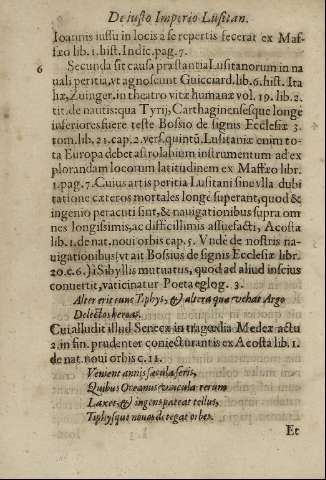 De iusto Imperio Lusitan.
Ioannis iussu in locis a se repertis fecerat ex Maf-
fæo lib. 1. hist. Indic. pag. 7.
6 Secunda sit causa præstantia Lusitanorum in na
uali peritia, vt agnoscunt Guicciard. lib. 6. hist. Ita
liæ, Zuinger. in theatro vitæ humanæ vol. 19. lib. 2.
tit. de nautis: qua Tyrij, Carthaginensesque longe
inferiores fuere teste Bossio de signis Ecclesiæ 3.
tom. lib. 21. cap. 2. vers. quintū. Lusitaniæ enim to-
ta Europa debet astrolabium instrumentum ad ex
plorandam locorum latitudinem ex Maffæo libr.
1. pag. 7. Cuius artis peritia Lusitani sine vlla dubi
tatione cæteros mortales longè superant, quod &
ingenio peracuti sint, & nauigationibus supra om
nes longissimis, ac difficillimis assuefacti, Acosta
lib. 1. de nat. noui orbis cap. 5. Vndè de nostris na-
uigationibus (vt ait Bossius de signis Ecclesiæ libr.
20. c. 6.) à Sibyllis mutuatus, quod ad aliud inscius
conuertit, vaticinatur Poeta eglog. 3.
Alter erit tunc Tiphys, & altera quæ vehat Argo
Delectos heroas.
Cui alludit illud Senecæ in tragœdia Medeæ actu
2. in fin. prudenter coniecturantis ex Acosta lib. 1.
de nat. noui orbis c. 11.
Venient annis sæcula seris,
Quibus Oceanus vincula rerum
Laxet, & ingens pateat tellus,
Tiphysque nouos detegat orbes.
Et